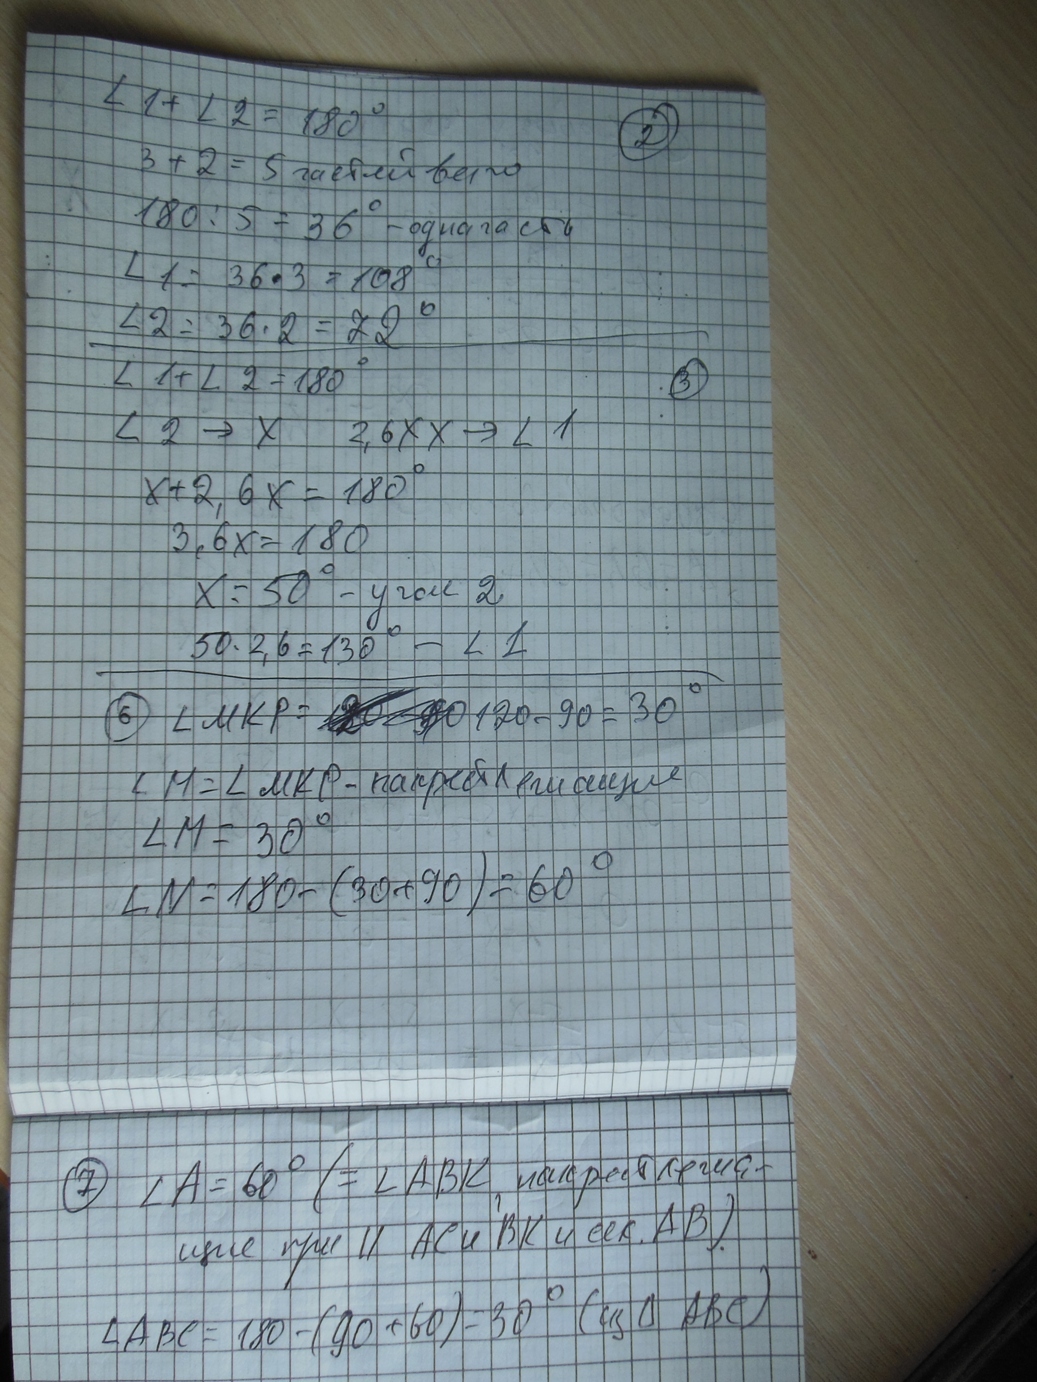 ∠1+∠2=180° ②
3+2=5 частей всего
180:5=36° – одна часть
∠1=36·3=108°
∠2=36·2=72°
∠1+∠2=180° ③
∠2→x 2,6x x→∠1
x+2,6x=180°
3,6x=180
x=50° – угол 2
50·2,6=130° – ∠1
⑥ ∠MKP= 120-90=30°
∠M=∠MKP- накрест лежащие
∠M=30°
∠N=180-(30+90)=60°
⑦ ∠A=60° (=∠ABK, накрест лежа-
щие при || AC и BK и сек. AB).
∠ABC=180-(90+60)=30° (из Δ ABC)